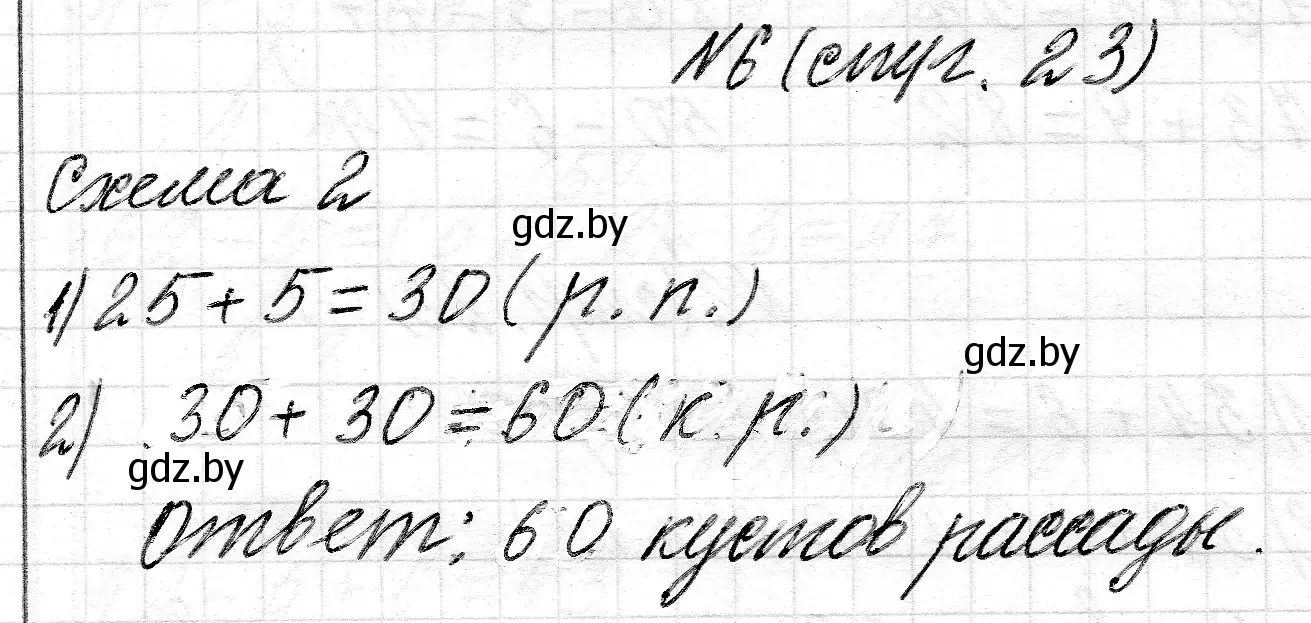 №6 (стр. 23)
Схема 2
gdz.by
1) 25 + 5 = 30 (р. п.)
gdz.by
2) 30 + 30 = 60 (к. р.)
gdz.by
Ответ: 60 кустов рассады.